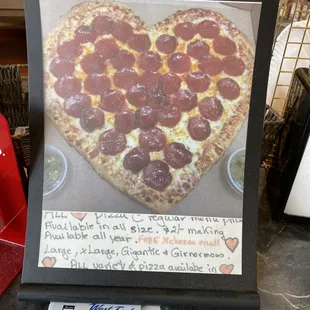 ALL pizza @ regular menu price
Available in all size, $2/- making
Available all year. FREE Xcheese small
Large, xLarge, Gigantic & Ginormous.
ALL variety of pizza available in